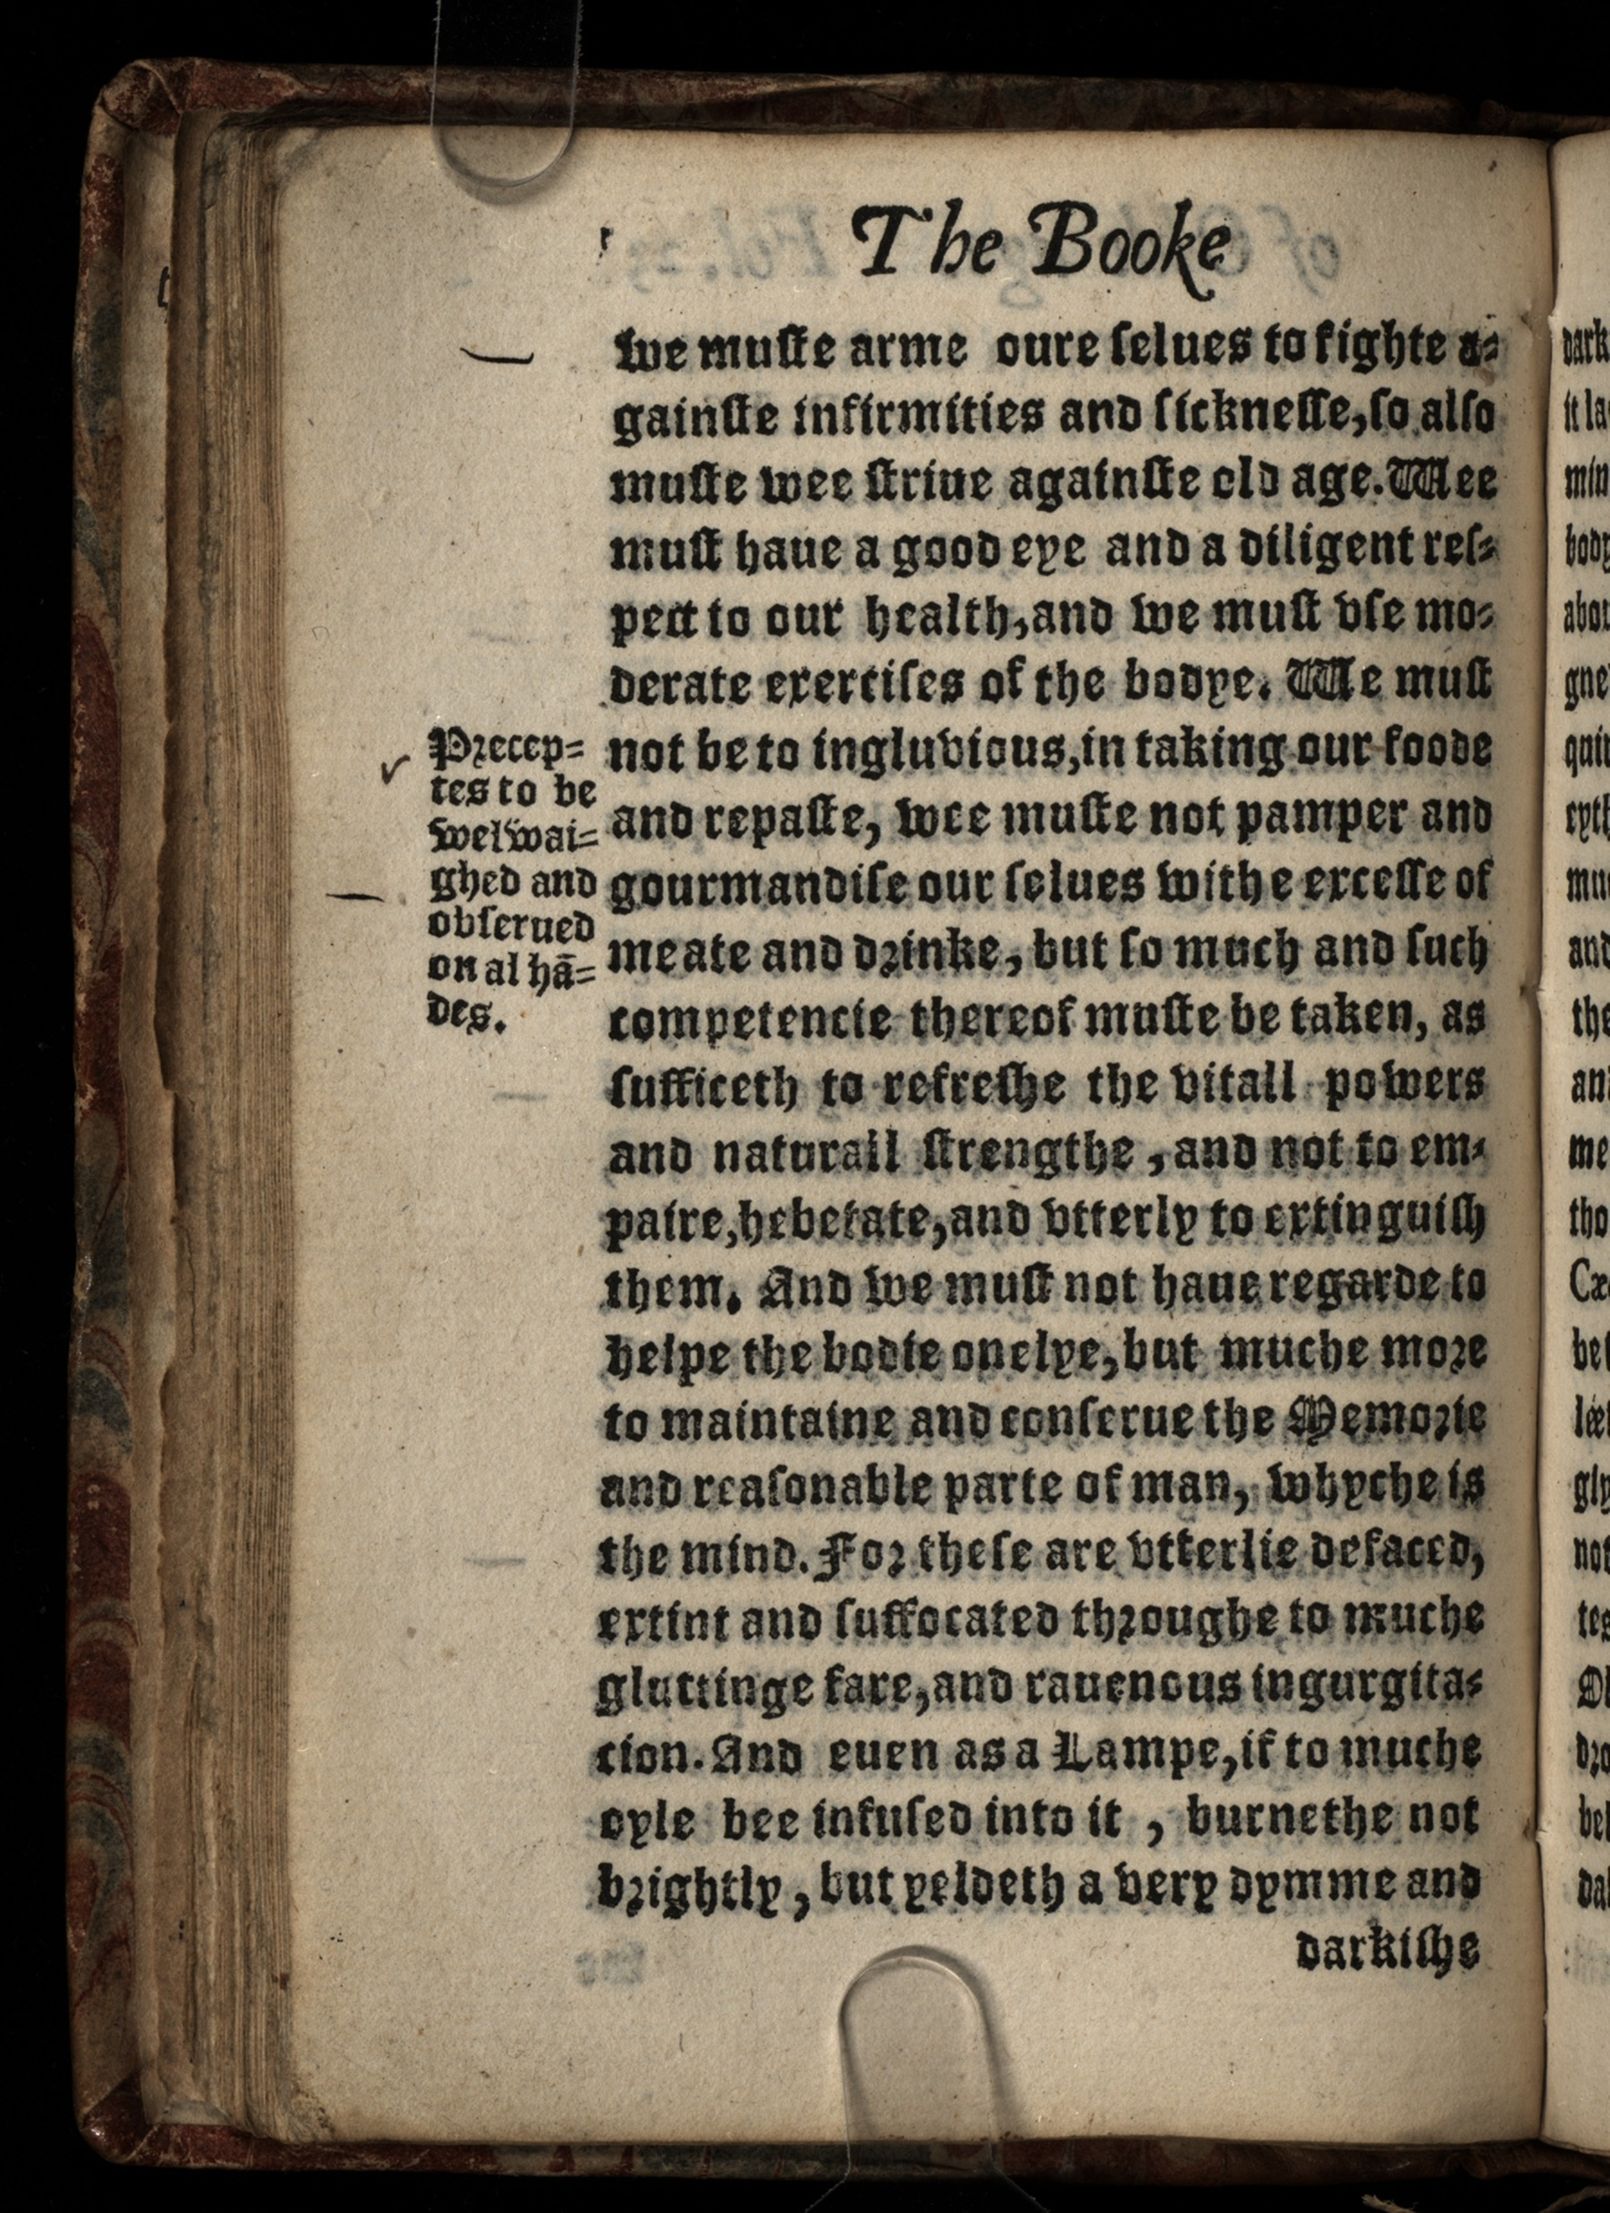 The Booke
we muſte arme oure ſelues to fighte a-
gainſte infirmities and ſickneſſe, ſo alſo
muſte wee ſtriue againſte old age. Wee
muſt haue a good eye and a diligent reſ-
pect to our health, and we muſt vſe mo-
derate exerciſes of the bodye. We muſt
not be to ingluvious, in taking our foode
and repaſte, wee muſte not pamper and
gourmandiſe our ſelues withe exceſſe of
meate and drinke, but ſo much and ſuch
competencie thereof muſte be taken, as
ſufficeth to refreſhe the vitall powers
and naturall ſtrengthe, and not to em-
paire, hebetate, and vtterly to extinguiſh
them. And we muſt not haue regarde to
helpe the bodie onelye, but muche more
to maintaine and conſerue the Memorie
and reaſonable parte of man, whyche is
the mind. For theſe are vtterlie defaced,
extint and ſuffocated throughe to muche
gluttinge fare, and rauenous ingurgita-
cion. And euen as a Lampe, if to muche
oyle bee infuſed into it, burnethe not
brightly, but yeldeth a very dymme and
darkiſhe
Precep-
tes to be
wel wai-
ghed and
obſerued
on al hā-
des.
dark
it la
min
body
abou
gne
quir
and
the
an
me
tho
bel
not
tes
dro
bel